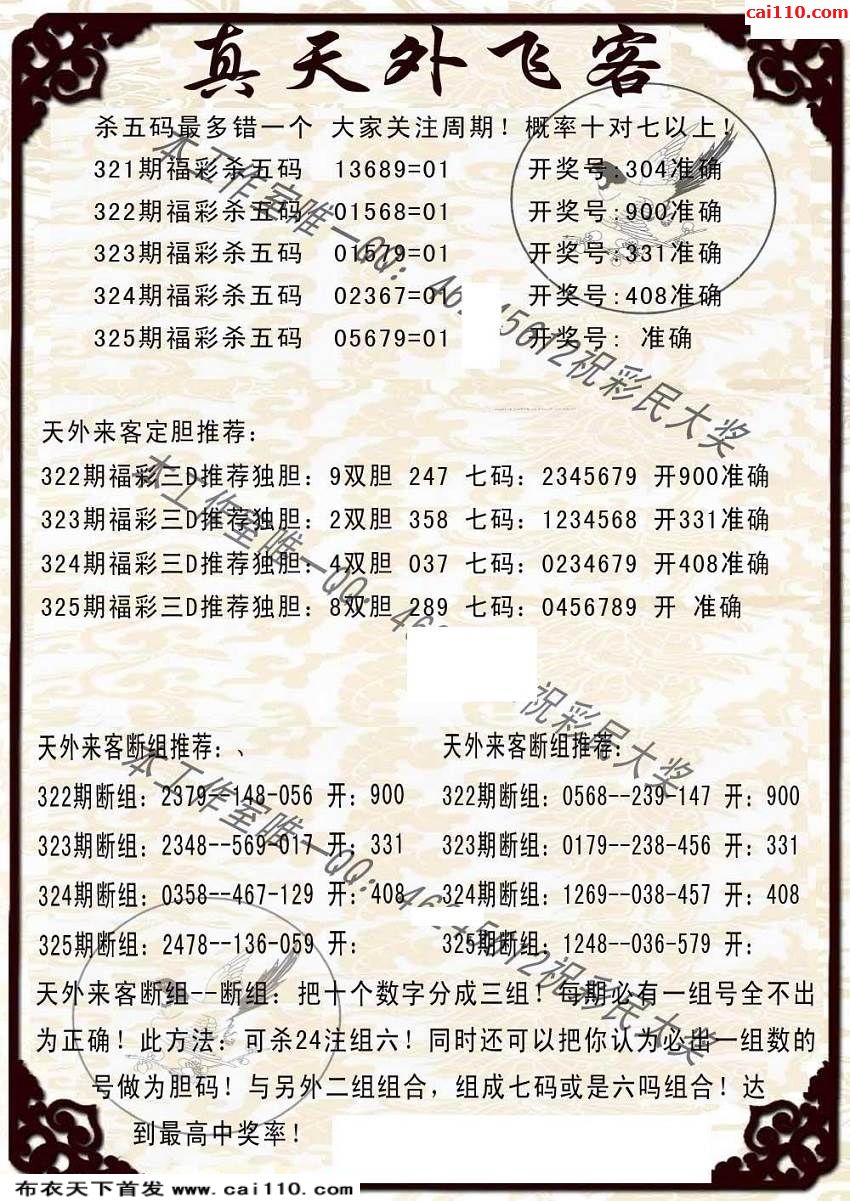 cai110.com
真天外飞客
杀五码最多错一个 大家关注周期！概率十对七以上！
321期福彩杀五码 13689=01 开奖号:304准确
322期福彩杀五码 01568=01 开奖号:900准确
323期福彩杀五码 01579=01 开奖号:331准确
324期福彩杀五码 02367=01 开奖号:408准确
325期福彩杀五码 05679=01 开奖号: 准确
天外来客定胆推荐：
322期福彩三D推荐独胆：9双胆 247 七码：2345679 开900准确
323期福彩三D推荐独胆：2双胆 358 七码：1234568 开331准确
324期福彩三D推荐独胆：4双胆 037 七码：0234679 开408准确
325期福彩三D推荐独胆：8双胆 289 七码：0456789 开 准确
天外来客断组推荐：、 天外来客断组推荐：
322期断组：2379--148-056 开：900 322期断组：0568--239-147 开：900
323期断组：2348--569-017 开：331 323期断组：0179--238-456 开：331
324期断组：0358--467-129 开：408 324期断组：1269--038-457 开：408
325期断组：2478--136-059 开： 325期断组：1248--036-579 开：
天外来客断组--断组：把十个数字分成三组！每期必有一组号全不出
为正确！此方法：可杀24注组六！同时还可以把你认为必出一组数的
号做为胆码！与另外二组组合，组成七码或是六吗组合！达
到最高中奖率！
本工作室唯一QQ：祝彩民大奖
本工作室唯一QQ：祝彩民大奖
本工作室唯一QQ：祝彩民大奖
布衣天下首发 www.cai110.com